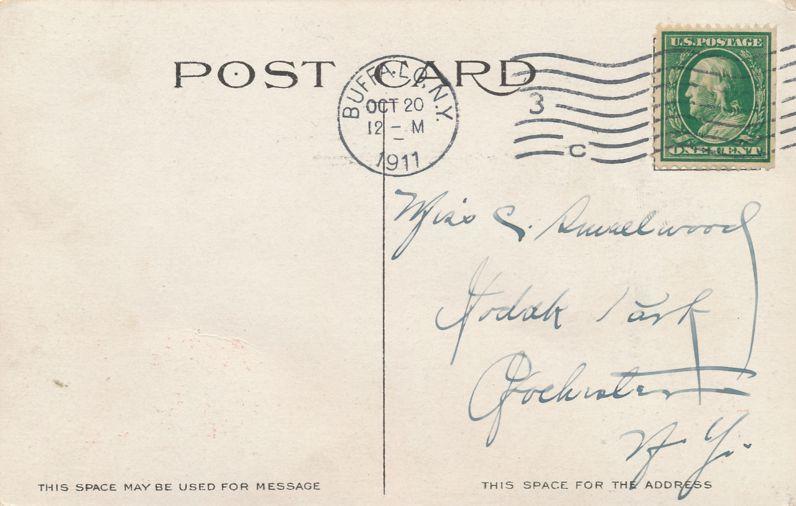 POST CARD
BUFFALO, N.Y.
OCT 20
12 - M
1911
3
C
U.S. POSTAGE
ONE CENT
Miss C. Smallwood
Kodak Park
Rochester
N. Y.
THIS SPACE MAY BE USED FOR MESSAGE
THIS SPACE FOR THE ADDRESS